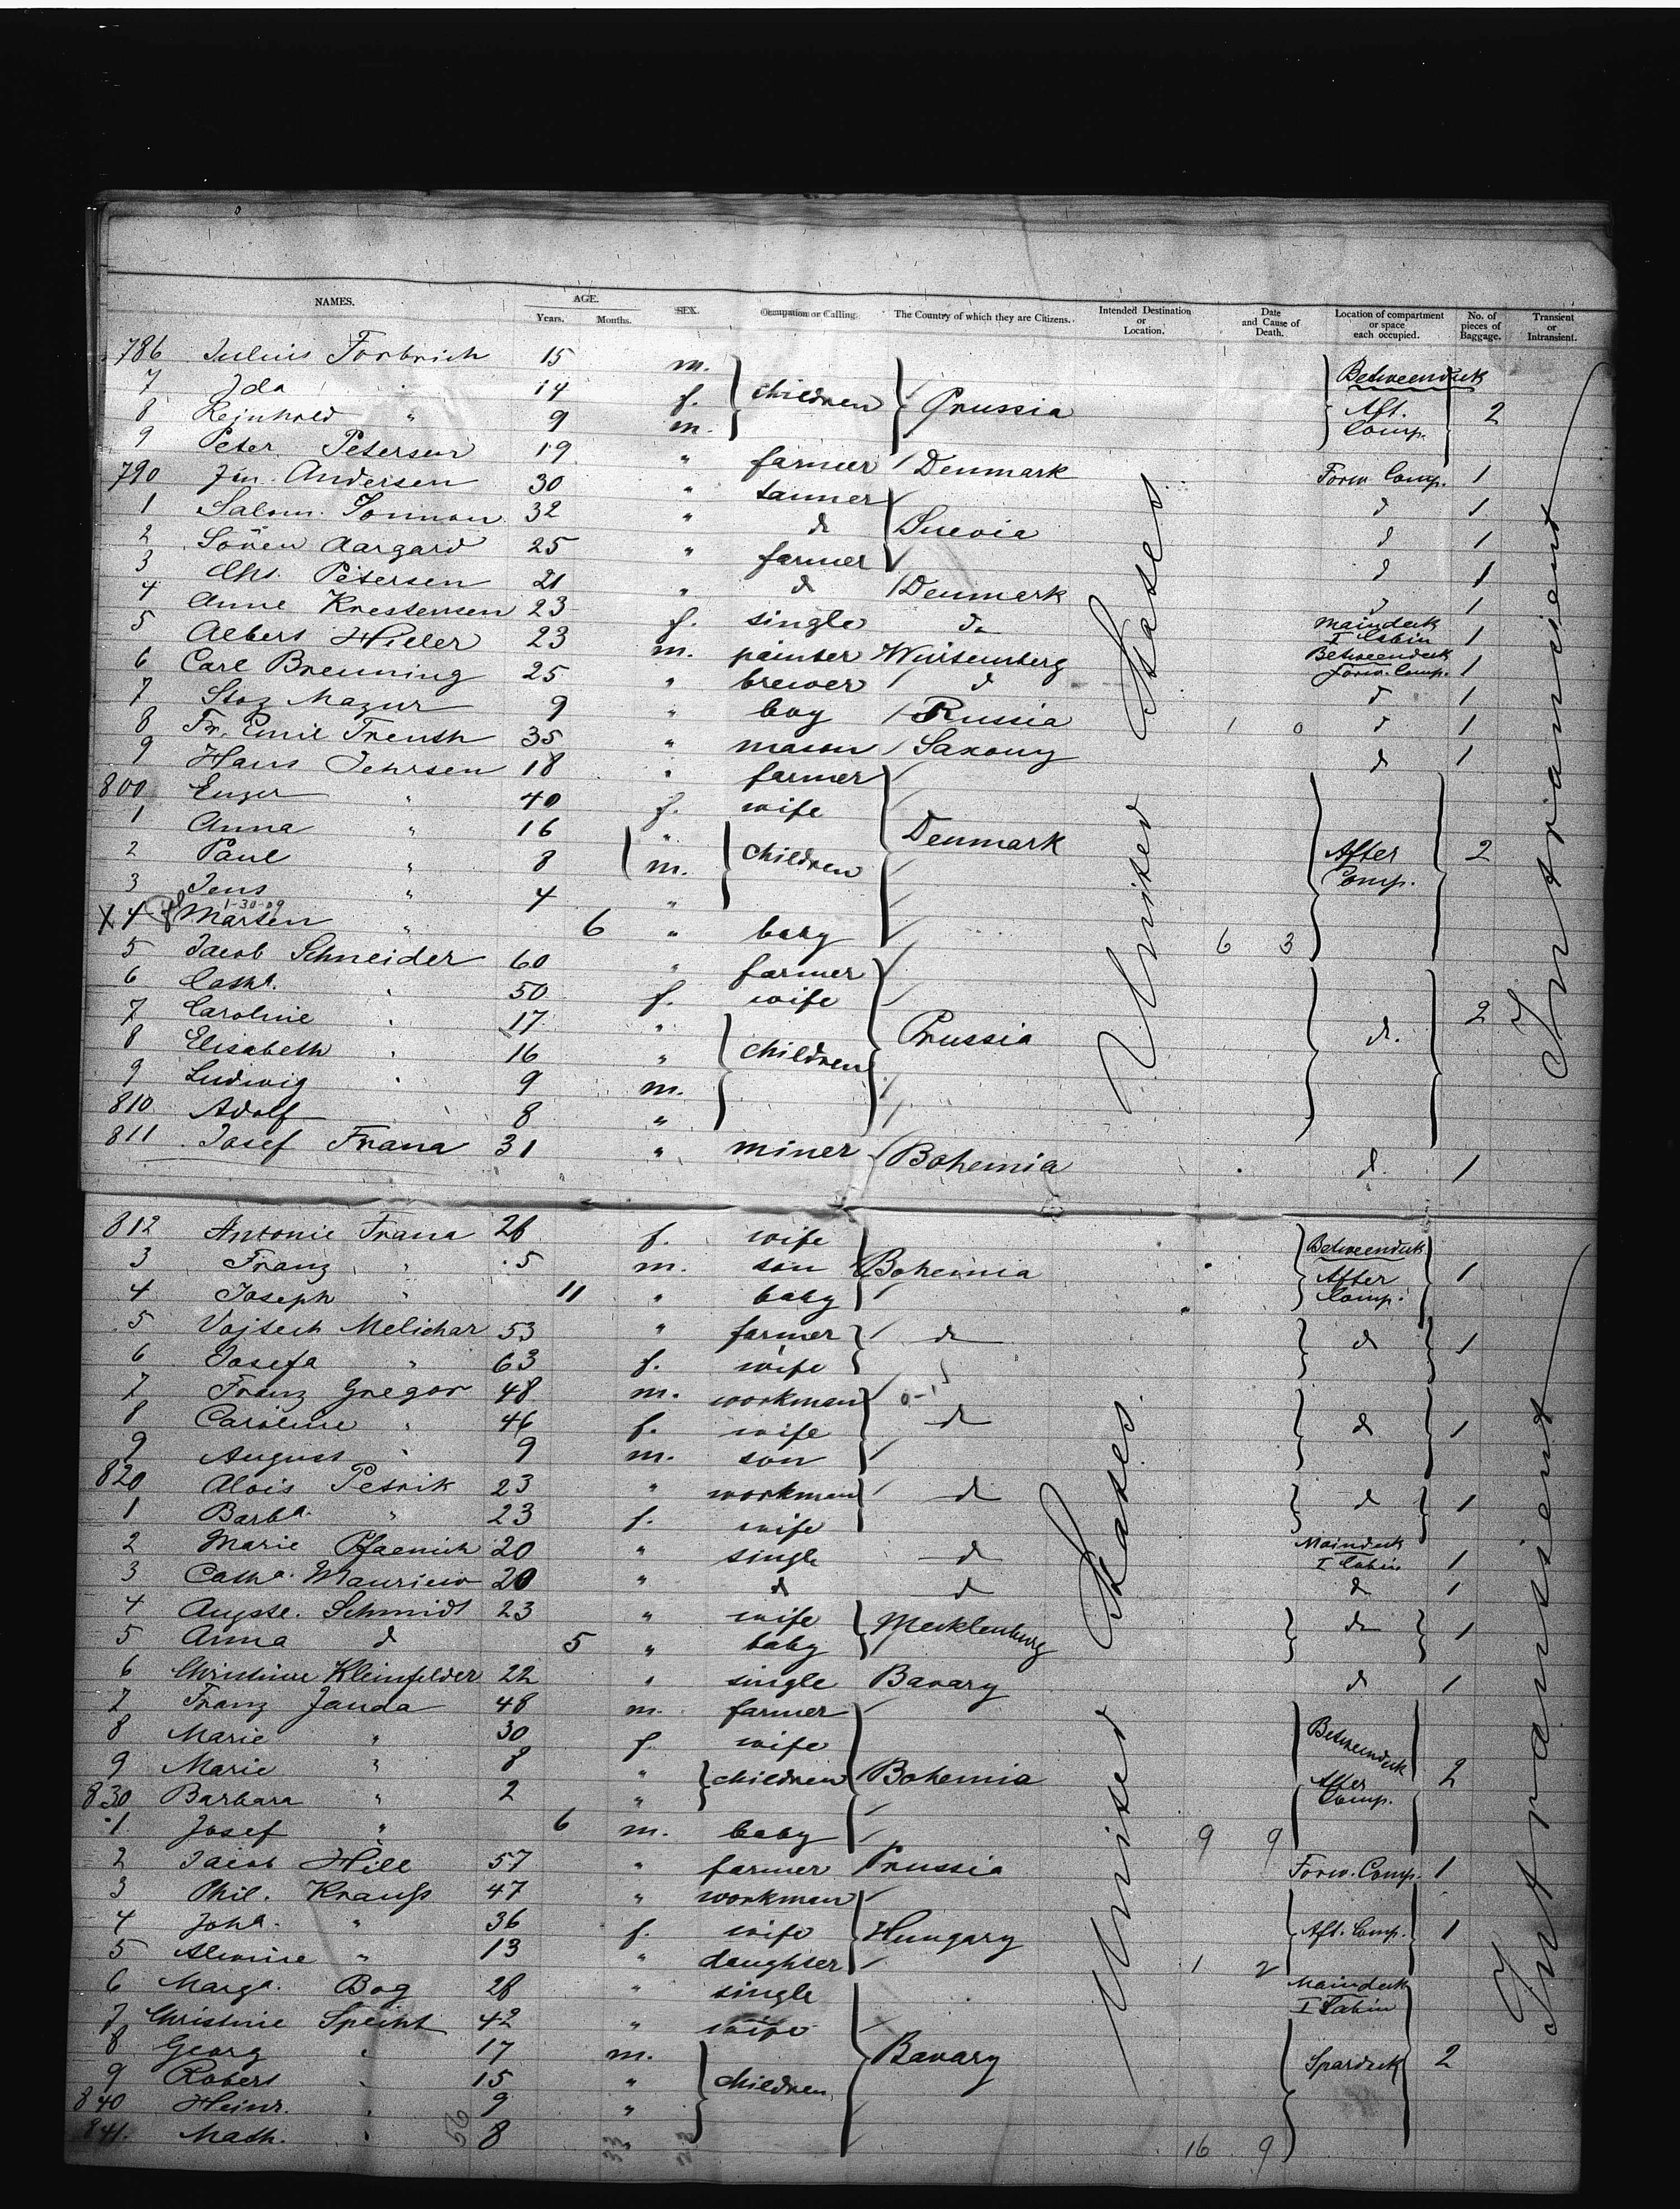 NAMES. AGE. Years. Months. SEX. Occupation or Calling. The Country of which they are Citizens. Intended Destination or Location. Date and Cause of Death. Location of compartment or space each occupied. No. of pieces of Baggage. Transient or Intransient.
786 Julius Forbrich 15 m. children Prussia Betweendeck Aft. Comp. 2
7 Ida 14 f.
8 Reinhold " 9 m.
9 Peter Petersen 19 " farmer Denmark Forw. Comp. 1
790 Andersen 30 " tanner d 1
1 Salom. 32 " d Suevia d 1
2 Sören Aargard 25 " farmer d 1
3 Chr. Petersen 21 " d Denmark 1
4 Anne Krestensen 23 f. single do Maindeck I Cabin 1
5 Albert Hiller 23 m. painter Würtemberg Betweendeck Forw. Comp. 1
6 Carl Breuning 25 " brewer d d 1
7 Mazur 9 " boy Russia d 1
8 Fr. Emil 35 " mason Saxony d 1
9 Hans 18 " farmer
800 " 40 f. wife
1 Anna " 16 " children Denmark After Comp. 2
2 Paul " 8 m.
3 Jens " 4 "
1-30-09
X 4 Marten " 6 " baby 6 3
5 Jacob Schneider 60 " farmer
6 Cath. " 50 f. wife
7 Caroline " 17 " children Prussia d. 2
8 Elisabeth " 16 "
9 Ludwig " 9 m.
810 Adolf 8 "
811 Josef Frana 31 " miner Bohemia d. 1
United States
Intransient
812 Antonie Frana 28 f. wife Betweendeck
3 Franz " 5 m. son Bohemia After 1
4 Joseph " 11 " baby Comp.
5 Vojtech Melichar 53 " farmer do d 1
6 Josefa " 63 f. wife
7 Franz Gregor 48 m. workman
8 Caroline " 46 f. wife d d 1
9 August " 9 m. son
820 Alois Petrik 23 " workman d d 1
1 Barba. " 23 f. wife
2 Marie 20 " single d Maindeck I Cabin 1
3 Catha. 20 " d d d 1
4 Augste. Schmidt 23 " wife Mecklenburg do 1
5 Anna d 5 " baby
6 Christine Kleinfelder 22 " single Bavary d 1
7 Franz Janda 48 m. farmer
8 Marie " 30 f. wife Betweendeck
9 Marie " 8 " children Bohemia After Comp. 2
830 Barbara " 2 "
1 Josef " 6 m. baby 9 9
2 Jacob Hill 57 " farmer Prussia Forw. Comp. 1
3 Phil. Krauß 47 " workman
4 Joha. " 36 f. wife Hungary Aft. Comp. 1
5 Alwine " 13 " daughter 1 2
6 Marga. Bog 28 " single Maindeck I Cabin
7 Christine Speiht 42 " wife
8 Georg " 17 m. children Bavary Spardeck 2
9 Robert " 15 "
840 Heinr. " 9 "
841. Math. " 8 16 9
United States
Intransient